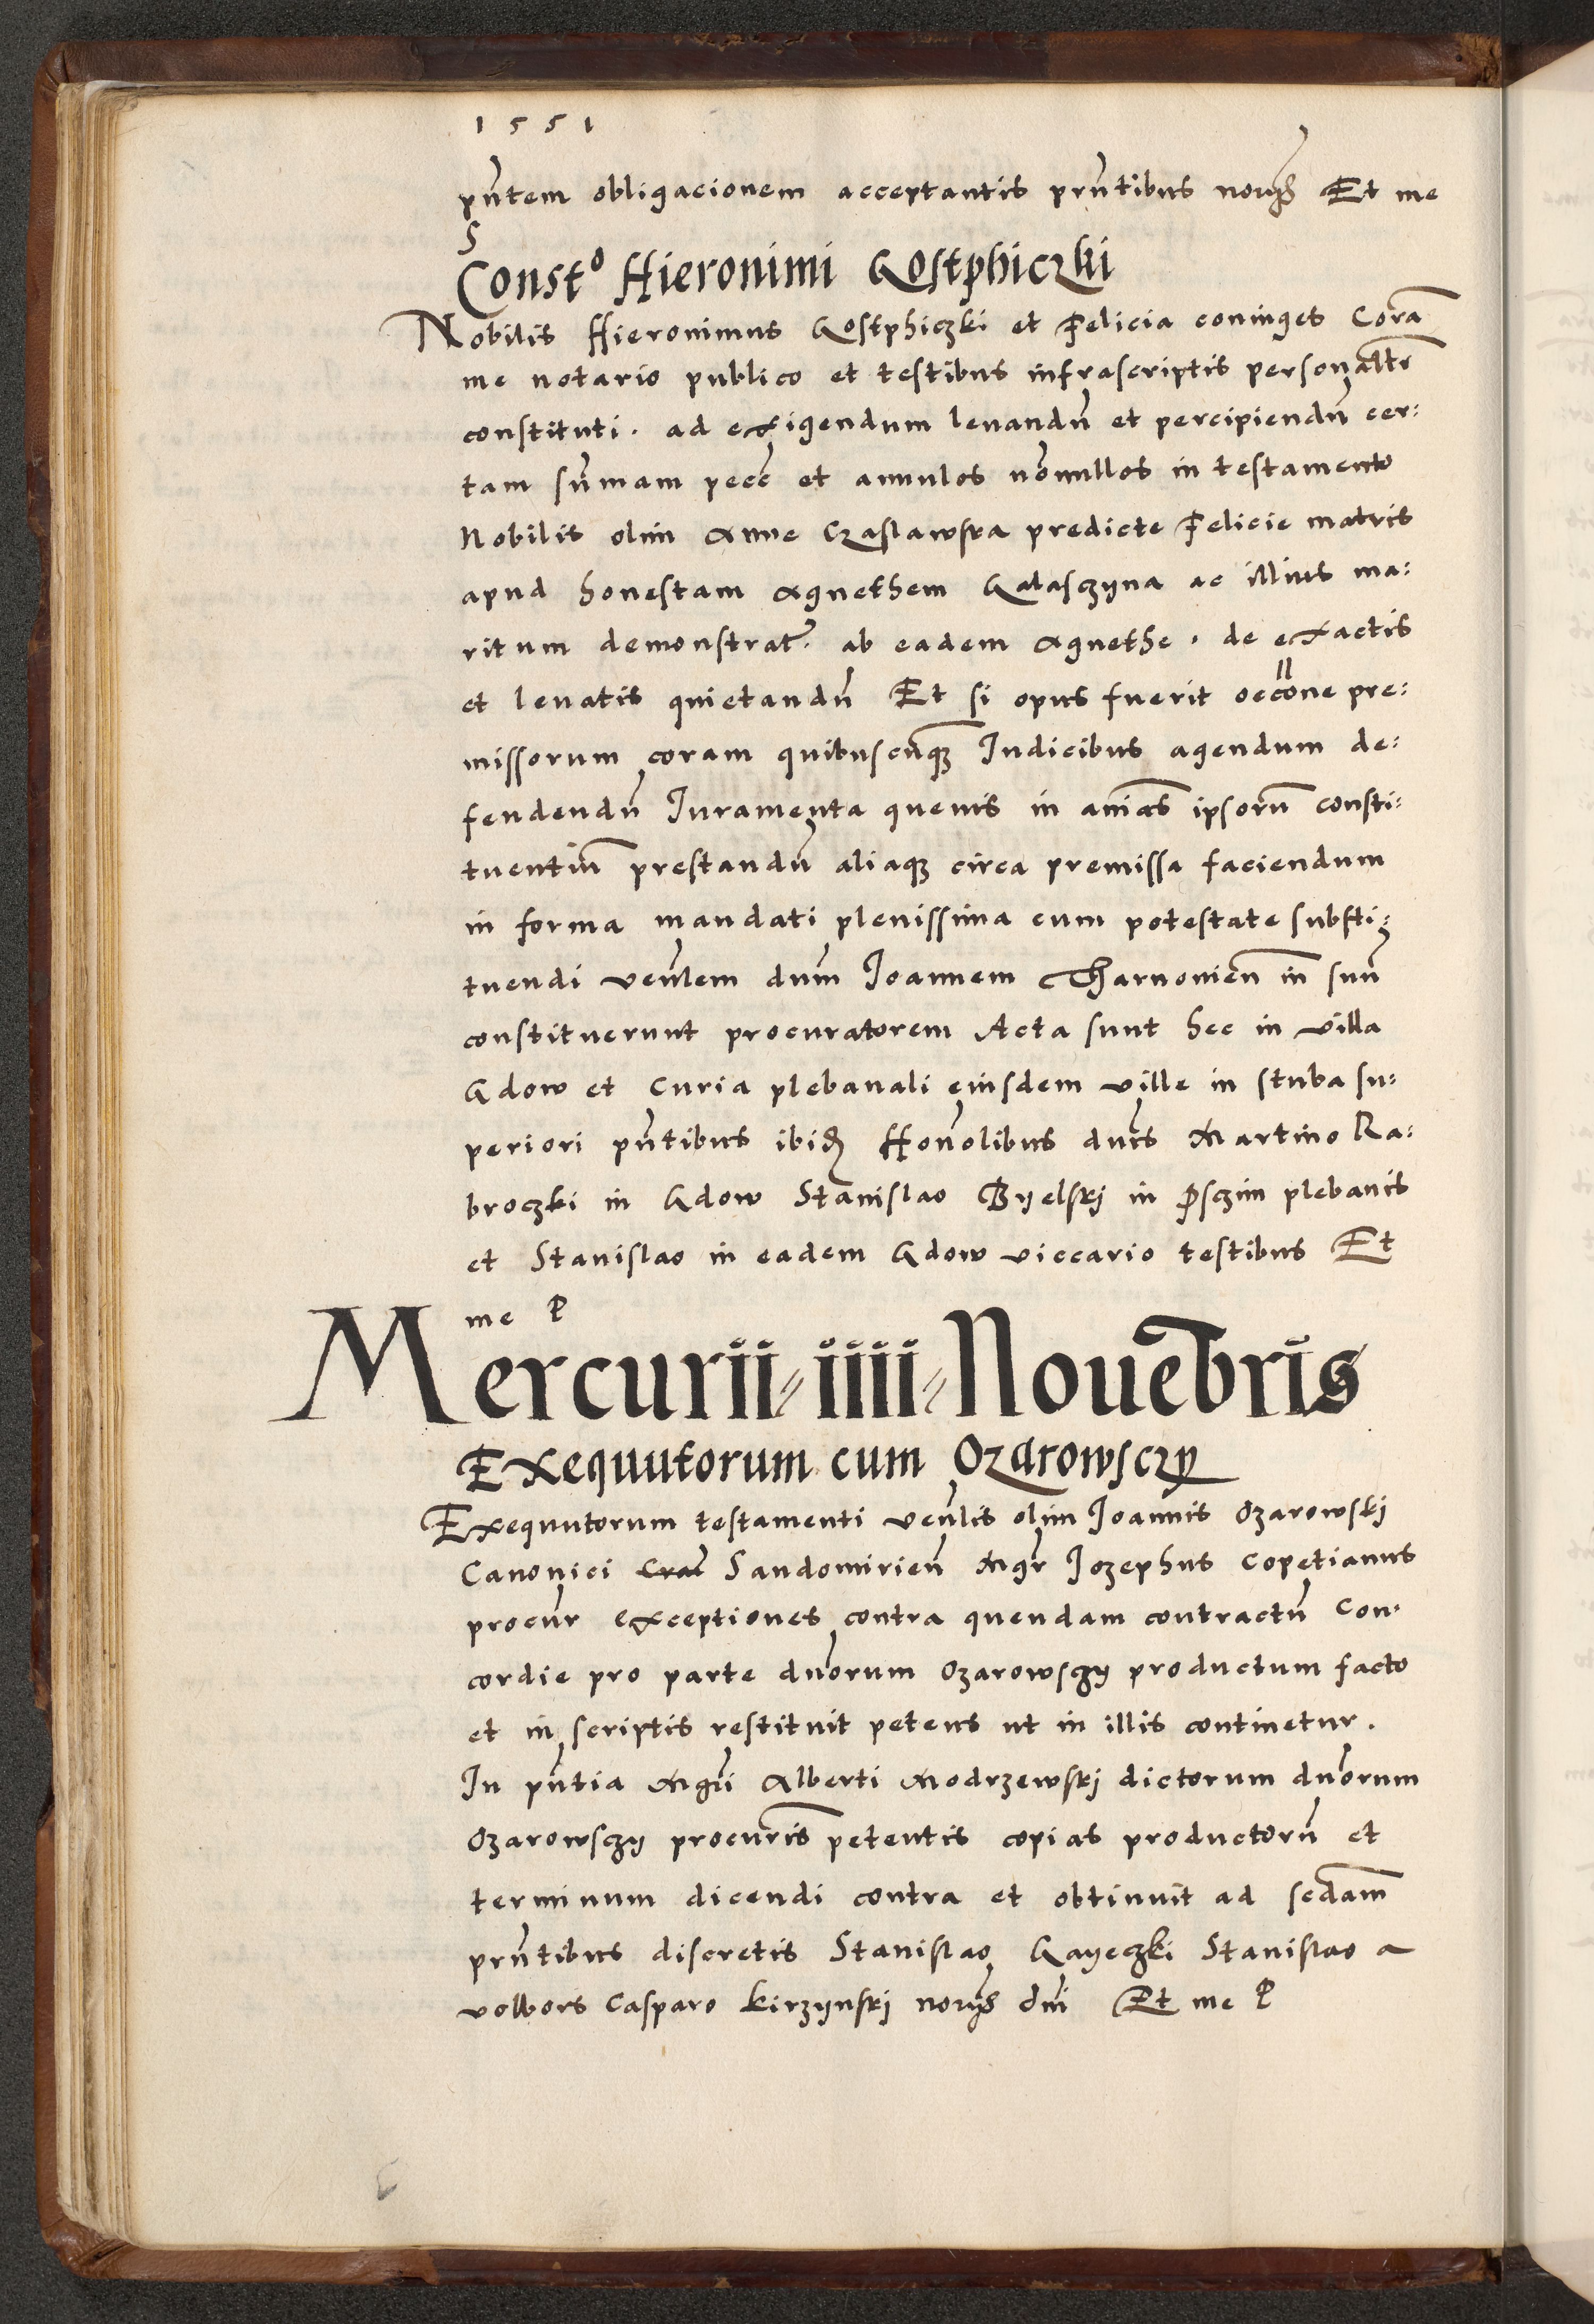 1551
pntem obligacionem acceptantis prntibus Et me
S
Constº Hieronimi Gostphiczki
Nobilis Hieronimus Gostphiczki et Felicia coniuges Cora
me notario publico et testibus infrascriptis personaltr
constituti. ad exigendum leuandu et percipiendu cer:
tam sumam pecc et annulos nonnullos in testamento
Nobilis olim Anne Czaslawska predicte Felicie matris
apud honestam Agnethem Galasczyna ac illius ma:
ritum demonstrat. ab eadem Agnethe. de exactis
et leuatis quietandu Et si opus fuerit occone pre:
missorum coram quibuscunque Iudicibus agendum de:
fendendu Iuramenta queuis in aias ipsoru consti:
tuentiu prestandu aliaque circa premissa faciendum
in forma mandati plenissima cum potestate substi:
tuendi venlem dnm Ioannem Tharnouien in suu
constituerunt procuratorem Acta sunt hec in villa
Gdow et Curia plebanali eiusdem ville in stuba su:
periori pntibus ibid Honolibus dnis Martino Ra:
broczki in Gdow Stanislao Byelskj in Psczim plebanis
et Stanislao in eadem Gdow viccario testibus Et
me P
Mercurii iiii Nouebris
Exequutorum cum Ozarowsczy
Exequutorum testamenti venlis olim Ioannis Ozarowskj
Canonici Crac Sandomirien Mgr Iozephus Copetianus
procur exceptiones contra quendam contractu Con:
cordie pro parte dnorum Ozarowsczy productum facto
et in scriptis restituit petens ut in illis continetur.
In pntia Mgri Alberti Modrzewskj dictorum dnorum
Ozarowsczy procuris petentis copias productoru et
terminum dicendi contra et obtinuit ad sedam
prntibus discretis Stanislao Gayeczki Stanislao a
volbors Casparo Kirzynskj dni Et me P